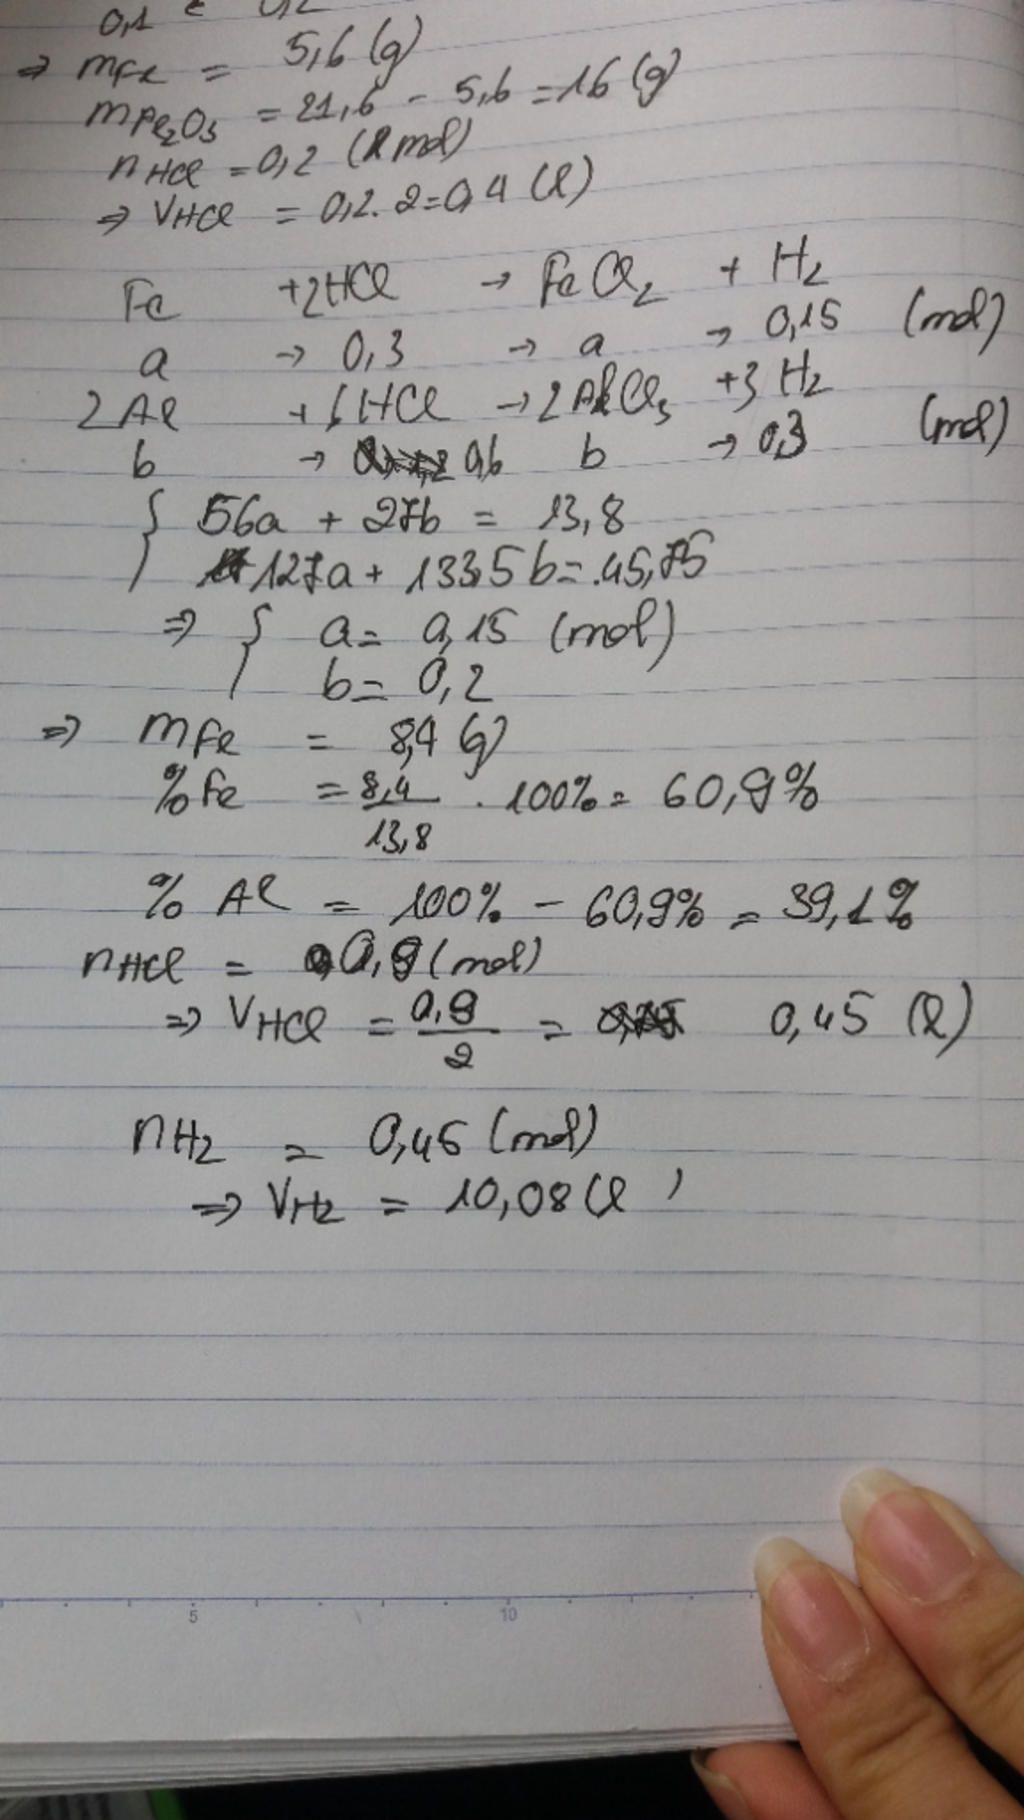 0,1 ← 0,2
⇒ mFe = 5,6 (g)
mFe2O3 = 21,6 - 5,6 = 16 (g)
nHCl = 0,2 (mol)
⇒ VHCl = 0,2. 2 = 0,4 (l)
Fe +2HCl → FeCl2 + H2
a → 0,3 → a → 0,15 (mol)
2Al +6HCl → 2AlCl3 +3H2
b → 0,6 b → 0,3 (mol)
{ 56a + 27b = 13,8
127a + 133,5b = 45,75
⇒ { a = 0,15 (mol)
b = 0,2
⇒ mFe = 8,4 (g)
%Fe = 8,4/13,8 . 100% = 60,9%
% Al = 100% - 60,9% = 39,1%
nHCl = 0,9 (mol)
⇒ VHCl = 0,9/2 = 0,45 (l)
nH2 = 0,45 (mol)
⇒ VH2 = 10,08 (l)
5 10